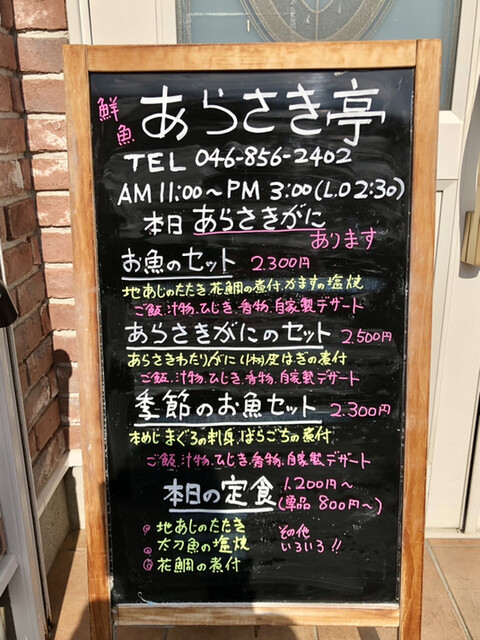 鮮魚 あらさき亭
TEL 046-856-2402
AM 11:00～PM 3:00(L.O 2:30)
本日 あらさきがに
あります
お魚のセット 2.300円
地あじのたたき 花鯛の煮付.かますの塩焼
ご飯.汁物.ひじき.香物.自家製デザート
あらさきがにのセット 2.500円
あらさきわたりがに(1杯)皮はぎの煮付
ご飯.汁物.ひじき.香物.自家製デザート
季節のお魚セット 2.300円
本めじまぐろの刺身.ばらごちの煮付
ご飯.汁物.ひじき.香物.自家製デザート
本日の定食 1.200円～
(単品 800円～)
地あじのたたき
太刀魚の塩焼
花鯛の煮付
その他
いろいろ!!